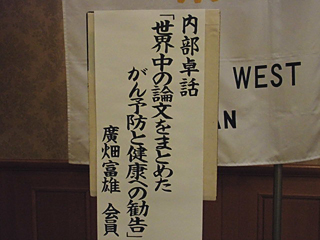 内部卓話
「世界中の論文をまとめた
がん予防と健康への勧告」
廣畑富雄 会員
WEST
AN